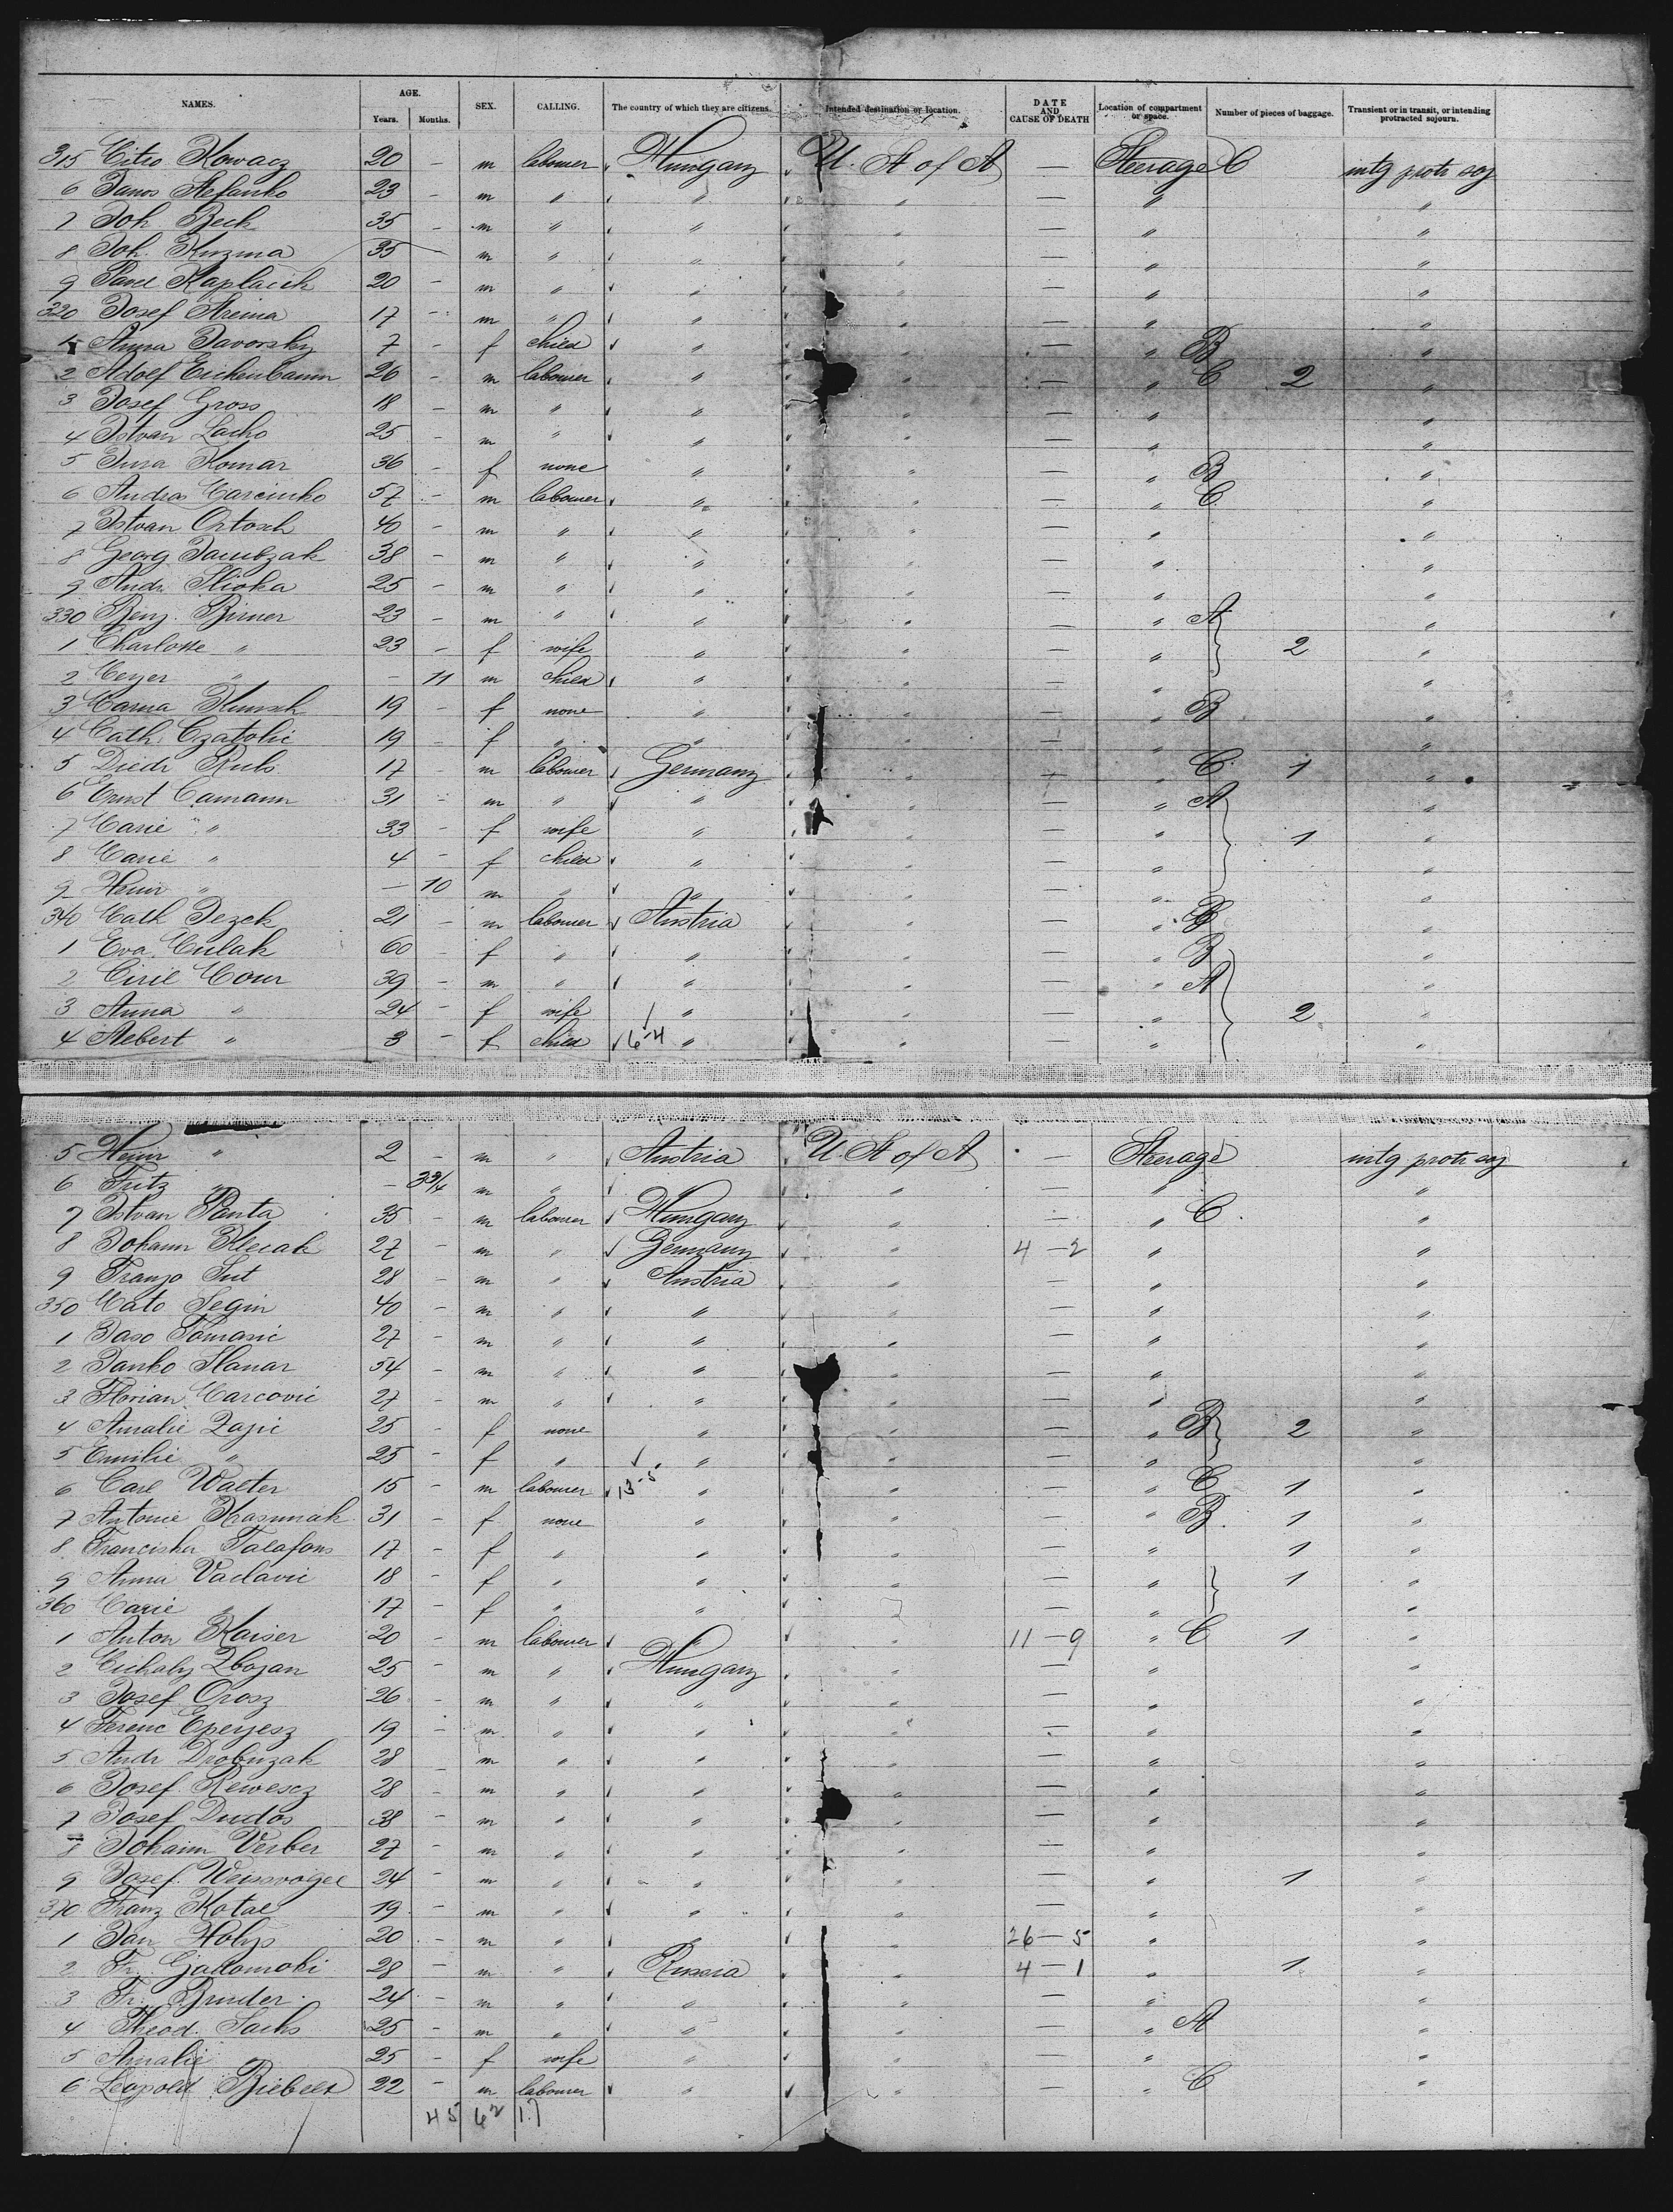 NAMES. AGE. SEX. CALLING. The country of which they are citizens. Intended destination or location. DATE AND CAUSE OF DEATH Location of compartment or space. Number of pieces of baggage. Transient or in transit, or intending protracted sojourn.
Years. Months.
315 Kowacz 20 – m labourer Hungary U. St of A — Steerage C intg protr soj
6 Janos Stefanko 23 – m " " " — " "
7 Joh Beck 35 – m " " " — " "
8 Joh. Kuzma 35 – m " " " — " "
9 Pavel Kaplacik 20 – m " " " — " "
320 Josef Streina 17 – m " " " — " "
1 Anna Javorsky 7 – f child " " — " B "
2 Adolf Eichenbaum 26 – m labourer " " — " C 2 "
3 Josef Gross 18 – m " " " — " "
4 Istvan Lacko 25 – m " " " — " "
5 Jura Komar 36 – f none " " — " B "
6 Andras Marcinko 57 – m labourer " " — " C "
7 Istvan Ortosch 40 – m " " " — " "
8 Georg 38 – m " " " — " "
9 Andr. Slioka 25 – m " " " — " "
330 Benj. Birner 23 – m " " " — " A "
1 Charlotte " 23 – f wife " " — " 2 "
2 Meyer " – 11 m child " " — " "
3 Maria 19 – f none " " — " B "
4 Cath. Czatolic 19 – f " " " — " "
5 Diedr 17 – m labourer Germany " — " C 1 "
6 Ernst Camann 31 – m " " " — " A "
7 Marie " 33 – f wife " " — " 1 "
8 Marie " 4 – f child " " — " "
9 Heinr " – 10 m " " " — " "
340 Math Dezek 21 – m labourer Austria " — " C "
1 Eva Mulak 60 – f " " " — " B "
2 Ciril Mour 39 – m " " " — " A "
3 Anna " 24 – f wife " " — " 2 "
4 " 3 – f child 6-4 " " — " "
5 Heinr " 2 – m " Austria U. St of A — Steerage intg protr soj
6 Fritz " – 3 3/4 m " " " — " "
7 Istvan Panta 35 – m labourer Hungary " — " C "
8 Johann Klecak 27 – m " Germany " 4 – 2 " "
9 Franjo Sut 28 – m " Austria " — " "
350 Mato Segin 40 – m " " " — " "
1 Baso Tomasic 27 – m " " " — " "
2 Janko Slanar 54 – m " " " — " "
3 Florian Marcovic 27 – m " " " — " "
4 Amalie Zajic 25 – f none " " — " B 2 "
5 Emilie " 25 – f " " " — " "
6 Carl Walter 15 – m labourer 13-5 " " — " C 1 "
7 Antonie Krasnnak 31 – f none " " — " B 1 "
8 Franciska Talafons 17 – f " " " — " 1 "
9 Anna Vaclavic 18 – f " " " — " 1 "
360 Marie " 17 – f " " " — " "
1 Anton Kaiser 20 – m labourer " " 11 – 9 " C 1 "
2 Michaly Zbojan 25 – m " Hungary " — " "
3 Josef Orosz 26 – m " " " — " "
4 Ferenc Eperjesz 19 – m " " " — " "
5 Andr Drobnzak 28 m " " " — " "
6 Josef Rewescz 28 – m " " " — " "
7 Josef Dudos 38 – m " " " — " "
8 Johann Verber 27 – m " " " — " "
9 Josef Weissvogel 24 – m " " " — " 1 "
370 Franz Kotal 19 – m " " " — " "
1 Jan Holys 20 – m " " " 26 – 5 " "
2 Fr. 28 – m " Russia " 4 – 1 " 1 "
3 Fr. Bruder 24 – m " " " — " "
4 Theod. Sachs 25 – m " " " — " A "
5 Amalie " 25 – f wife " " — " "
6 Leopold 22 – m labourer " " — " C "
45 62 17